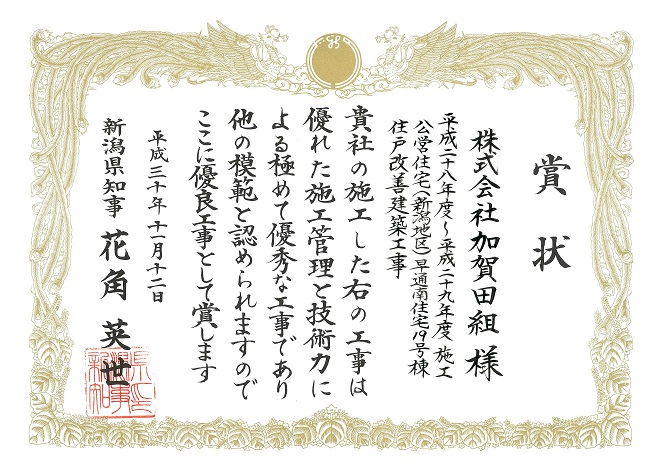 賞状
株式会社加賀田組 様
平成二十八年度～平成二十九年度 施工
公営住宅(新潟地区)早通南住宅19号棟
住戸改善建築工事
貴社の施工した右の工事は
優れた施工管理と技術力に
よる極めて優秀な工事であり
他の模範と認められますので
ここに優良工事として賞します
平成三十年十一月十二日
新潟県知事 花角 英世
新潟県知事之印